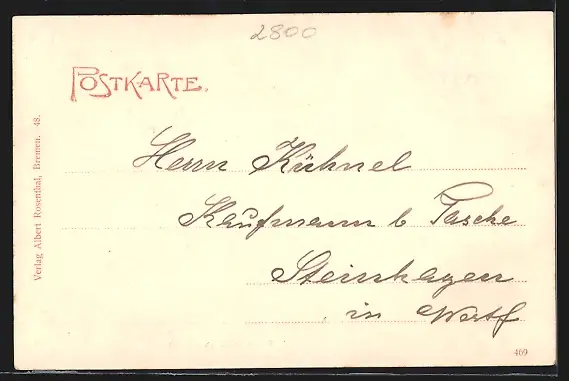 2800
POSTKARTE.
Herrn Kühnel
Kaufmann b. Tasche
Steinhagen
in Westf
Verlag Albert Rosenthal, Bremen. 48.
469